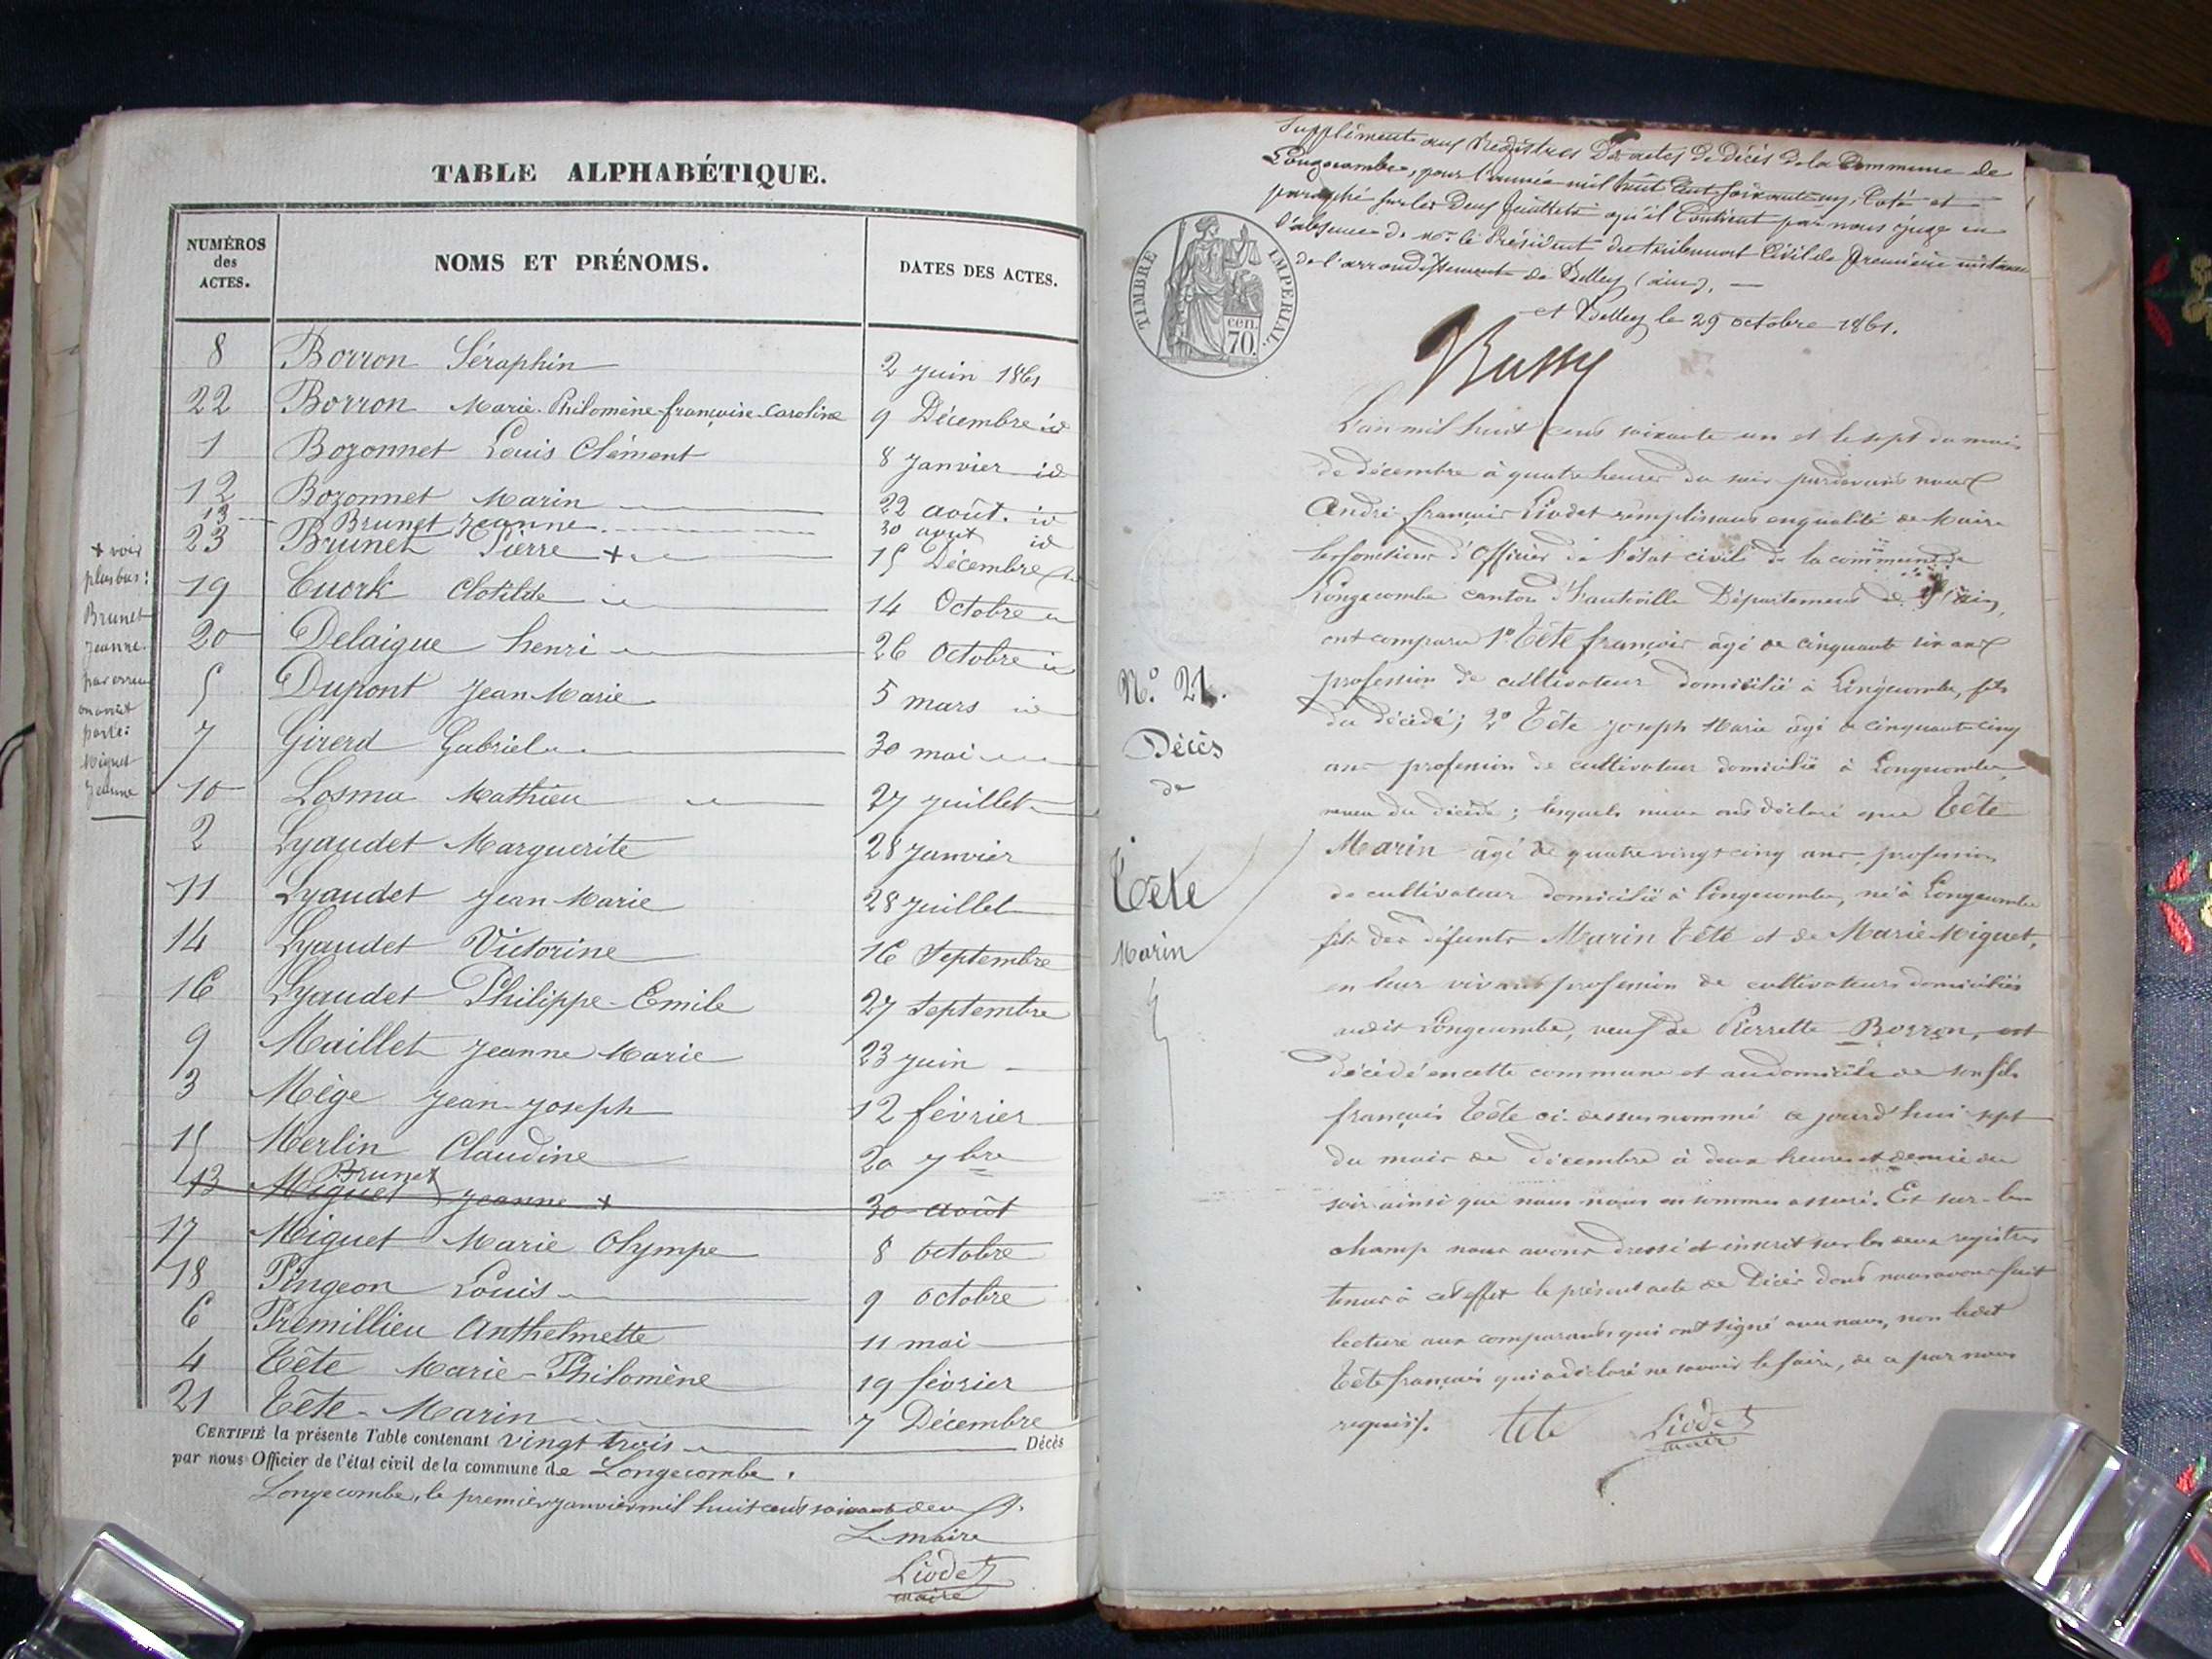 TABLE ALPHABÉTIQUE.
NUMÉROS des ACTES.
NOMS ET PRÉNOMS.
DATES DES ACTES.
8 Borron Séraphin 2 juin 1861
22 Borron Marie-Philomène-françoise-Caroline 9 Décembre id
1 Bozonnet Louis Clément 8 Janvier id
12 Bozonnet Marin 22 août. id
13 Brunet Jeanne 30 août id
23 Brunet Pierre + 15 Décembre
19 Cuork Clotilde 14 Octobre
20 Delaigue henri 26 Octobre
5 Dupont Jean-Marie 5 mars
7 Girerd Gabriel 30 mai
10 Losma Mathieu 27 juillet
2 Lyaudet Marguerite 28 Janvier
11 Lyaudet Jean Marie 28 juillet
14 Lyaudet Victorine 16 Septembre
16 Lyaudet Philippe-Emile 27 Septembre
9 Maillet Jeanne Marie 23 juin
3 Mège Jean-Joseph 12 février
15 Merlin Claudine 20 7bre
Brunet
13 Miguet Jeanne + 30 août
17 Miguet Marie Olympe 8 octobre
18 Pingeon Louis 9 octobre
6 Prémillieu Anthelmette 11 mai
4 Tête Marie-Philomène 19 février
21 Tête-Marin 7 Décembre
+ voir
plus bas:
Brunet
Jeanne.
par erreur
on avait
porté:
Miguet
Jeanne
CERTIFIÉ la présente Table contenant vingt trois Décès
par nous Officier de l'état civil de la commune de Longecombe.
Longecombe, le premier janvier mil huit cent soixante deux
Le maire
Liodet
maire
Supplément aux Registres Des actes de Décès de la Commune de
Longecombe, pour l'année mil huit Cent Soixante un, Coté et
paraphé sur les Deux feuillets qu'il Contient par nous Juge en
l'absence de Mr. le Président du tribunal Civil de Première instance
de l'arrondissement de Belley (ain).
et Belley le 29 octobre 1861.
TIMBRE IMPERIAL.
cen.
70.
Bussy
L'an mil huit cent soixante un et le sept du mois
de décembre à quatre heures du soir pardevant nous
André françois Liodet remplissant en qualité de Maire
les fonctions d'Officier de l'état civil de la commune de
Longecombe canton d'hauteville Département de l'Ain,
ont comparu 1º Tête françois âgé de cinquante six ans
profession de cultivateur domicilié à Longecombe, fils
du décédé; 2º Tête Joseph Marie âgé de cinquante cinq
ans profession de cultivateur domicilié à Longecombe
neveu du décédé; lesquels nous ont déclaré que Tête
Marin âgé de quatre vingt cinq ans, profession
de cultivateur domicilié à Longecombe, né à Longecombe
fils des défunts Marin Tête et de Marie Miguet,
en leur vivant profession de cultivateurs domiciliés
audit Longecombe, veuf de Pierrette Borron, est
décédé en cette commune et au domicile de son fils
françois Tête ci-dessus nommé ce jourd'hui sept
du mois de décembre à deux heures et demie du
soir ainsi que nous nous en sommes assuré. Et sur-le
champ nous avons dressé et inscrit sur les deux registres
tenus à cet effet le présent acte de Décès dont nous avons fait
lecture aux comparants qui ont signé avec nous, non ledit
Tête françois qui a déclaré ne savoir le faire, de ce par nous
requis.
tete
Liodet
maire
Nº 21.
Décès
de
Tête
Marin